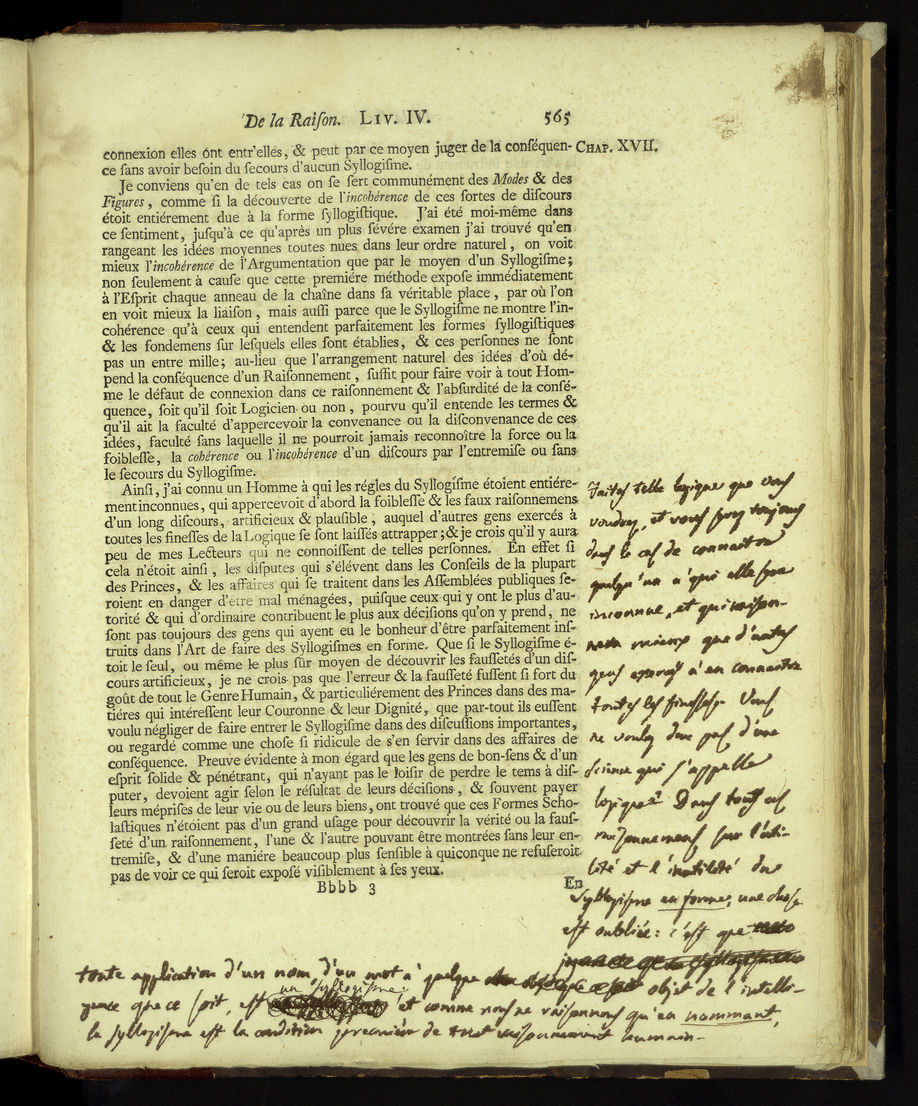 De la Raiſon. LIV. IV. 565
CHAP. XVII.
connexion elles ont entr'elles, & peut par ce moyen juger de la conſéquen-
ce ſans avoir beſoin du ſecours d'aucun Syllogiſme.
Je conviens qu'en de tels cas on ſe ſert communément des Modes & des
Figures, comme ſi la découverte de l'incohérence de ces ſortes de diſcours
étoit entiérement due à la forme ſyllogiſtique. J'ai été moi-même dans
ce ſentiment, juſqu'à ce qu'après un plus ſévére examen j'ai trouvé qu'en
rangeant les idées moyennes toutes nues dans leur ordre naturel, on voit
mieux l'incohérence de l'Argumentation que par le moyen d'un Syllogiſme;
non ſeulement à cauſe que cette premiére méthode expoſe immédiatement
à l'Eſprit chaque anneau de la chaîne dans ſa véritable place, par où l'on
en voit mieux la liaiſon, mais auſſi parce que le Syllogiſme ne montre l'in-
cohérence qu'à ceux qui entendent parfaitement les formes ſyllogiſtiques
& les fondemens ſur leſquels elles ſont établies, & ces perſonnes ne ſont
pas un entre mille; au-lieu que l'arrangement naturel des idées d'où dé-
pend la conſéquence d'un Raiſonnement, ſuffit pour faire voir à tout Hom-
me le défaut de connexion dans ce raiſonnement & l'abſurdité de la conſé-
quence, ſoit qu'il ſoit Logicien ou non, pourvu qu'il entende les termes &
qu'il ait la faculté d'appercevoir la convenance ou la diſconvenance de ces
idées, faculté ſans laquelle il ne pourroit jamais reconnoître la force ou la
foibleſſe, la cohérence ou l'incohérence d'un diſcours par l'entremiſe ou ſans
le ſecours du Syllogiſme.
Ainſi, j'ai connu un Homme à qui les régles du Syllogiſme étoient entiére-
ment inconnues, qui appercevoit d'abord la foibleſſe & les faux raiſonnemens
d'un long diſcours, artificieux & plauſible, auquel d'autres gens exercés à
toutes les fineſſes de la Logique ſe ſont laiſſés attrapper; & je crois qu'il y aura
peu de mes Lecteurs qui ne connoiſſent de telles perſonnes. En effet ſi
cela n'étoit ainſi, les diſputes qui s'élévent dans les Conſeils de la plupart
des Princes, & les affaires qui ſe traitent dans les Aſſemblées publiques ſe-
roient en danger d'être mal ménagées, puiſque ceux qui y ont le plus d'au-
torité & qui d'ordinaire contribuent le plus aux déciſions qu'on y prend, ne
ſont pas toujours des gens qui ayent eu le bonheur d'être parfaitement inſ-
truits dans l'Art de faire des Syllogiſmes en forme. Que ſi le Syllogiſme é-
toit le ſeul, ou même le plus ſûr moyen de découvrir les fauſſetés d'un diſ-
cours artificieux, je ne crois pas que l'erreur & la fauſſeté fuſſent ſi fort du
goût de tout le Genre Humain, & particuliérement des Princes dans des ma-
tiéres qui intéreſſent leur Couronne & leur Dignité, que par-tout ils euſſent
voulu négliger de faire entrer le Syllogiſme dans des diſcuſſions importantes,
ou regardé comme une choſe ſi ridicule de s'en ſervir dans des affaires de
conſéquence. Preuve évidente à mon égard que les gens de bon-ſens & d'un
eſprit ſolide & pénétrant, qui n'ayant pas le loiſir de perdre le tems à diſ-
puter, devoient agir ſelon le réſultat de leurs déciſions, & ſouvent payer
leurs mépriſes de leur vie ou de leurs biens, ont trouvé que ces Formes Scho-
laſtiques n'étoient pas d'un grand uſage pour découvrir la vérité ou la fauſ-
ſeté d'un raiſonnement, l'une & l'autre pouvant être montrées ſans leur en-
tremiſe, & d'une maniére beaucoup plus ſenſible à quiconque ne refuſeroit
pas de voir ce qui ſeroit expoſé viſiblement à ſes yeux.
Bbbb 3 En
Faites telle logique que vous
voudrez, et vous serez toujours
dans le cas de connaitre
quelqu'un à qui elle sera
inconnue, et qui raison-
nera mieux que d'autres
gens exercés à en connaitre
toutes les finesses. Vous
ne voulez donc pas d'une
science qui s'appelle
logique? Dans tous ces
raisonnemens sur l'uti-
lité et l'inutilité du
syllogisme en forme, une chose
est oubliée: c'est que
toute application d'un nom, d'un mot à quelque objet de l'intelli-
un syllogisme:
gence que ce soit, est et comme nous ne raisonnons qu'en nommant,
le syllogisme est la condition premiere de tout raisonnement humain.